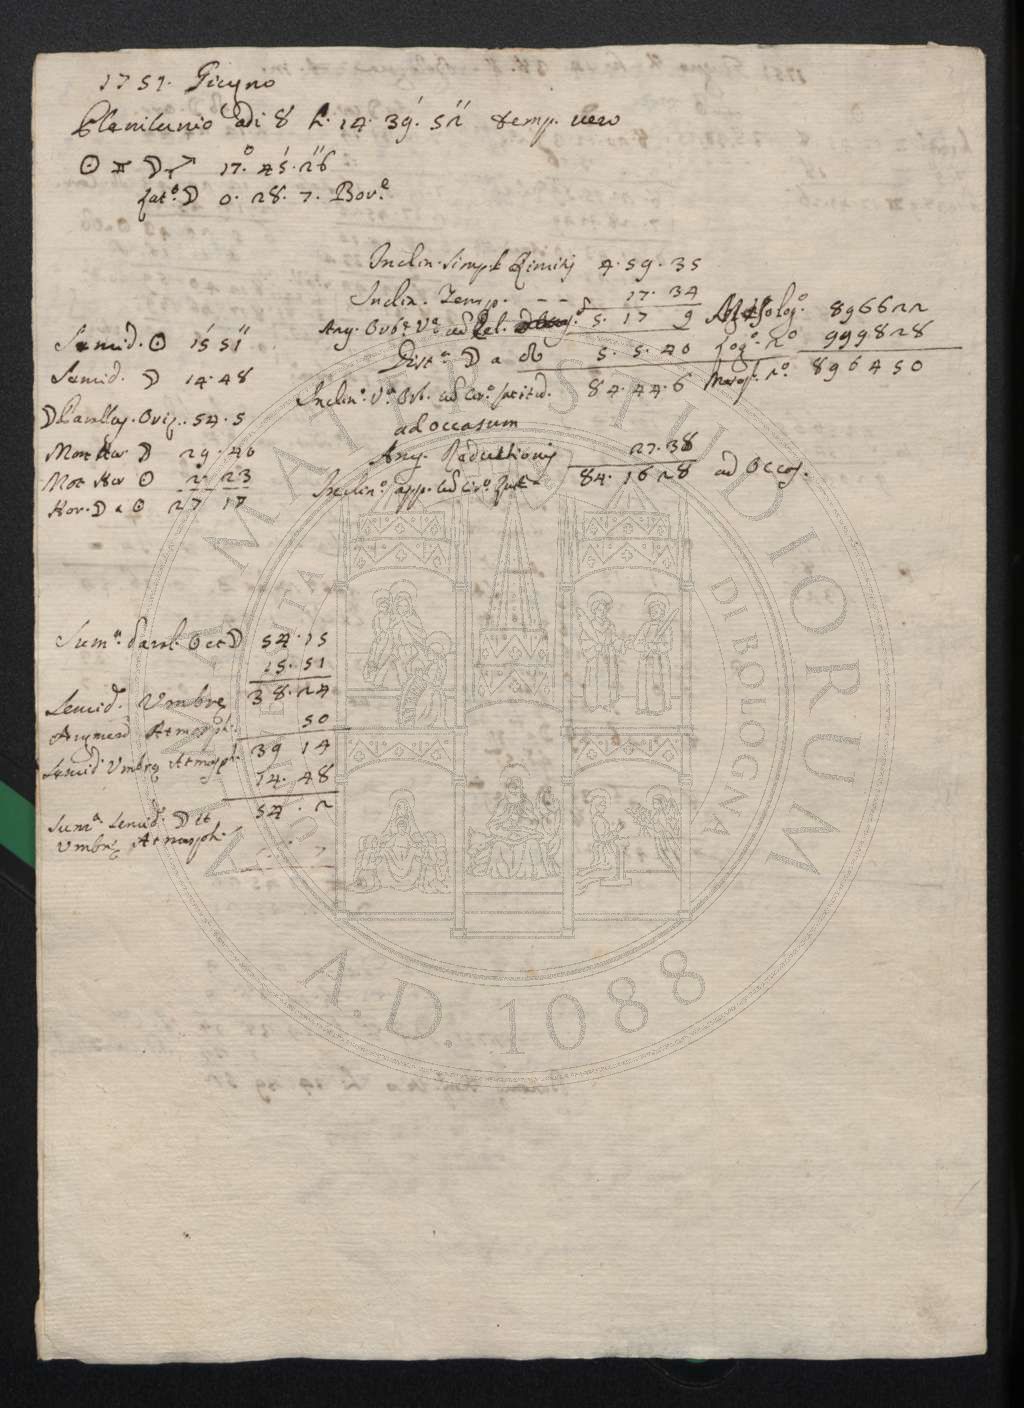 1751. Giugno
Plenilunio adi 8 h. 14. 39'. 52'' temp. vero
☉ ♊ ☽ ♐ 17.° 45'. 26''
Lat.° ☽ 0. 28. 7. Bor.e
Inclin. simpl. Limitis 4. 59. 35
Inclin. Temp. - - 17. 34
Ang. Orb. V.a ad Ecl. 5. 17 9
Dist.a ☽ a ☊ 5. 5. 40
Inclin.o V.a Orb. ad cir.o latitud. 84. 44. 6
ad occasum
Ang. Reductionis 27. 38
Inclin.o app. ad cir.o Lat. 84. 16 28 ad Occas.
896622
Log.o 2.o 999828
896450
Semid. ☉ 15' 51''
Semid. ☽ 14. 48
☽ Parallax. Oriz. 54. 5
Mot Hor ☽ 29. 40
Mot Hor ☉ 2. 23
Hor. ☽ a ☉ 27 17
Sum.a Paral. ☉ et ☽ 54. 15
15. 51
Semid. Umbrę 38. 24
Augmend Atmosph. 50
Semid. Umbrę Atmosph. 39 14
14. 48
Sum.a semid. ☽ et 54. 2
Umbrę Atmosph.
ALMA MATER STUDIORUM
UNIVERSITÀ DI BOLOGNA
A.D. 1088